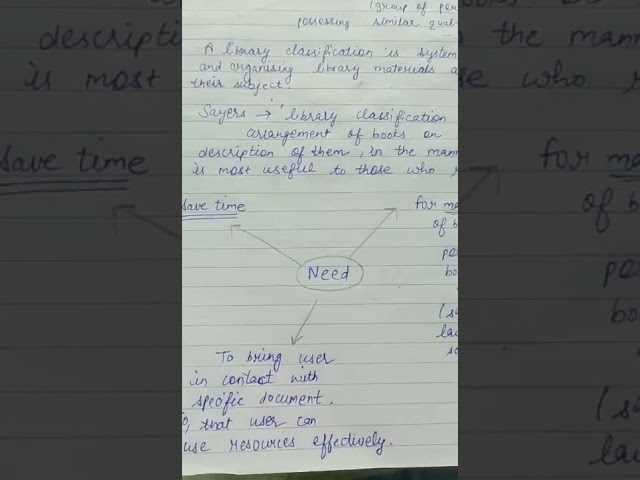 (group of per
possessing similar qual
A library classification is system
and organising library materials a
their subject.
Sayers → 'library classification
arrangement of books on
description of them, in the mann
is most useful to those who
save time
for ma
of b
Need
pe
bo
(s
la
so
To bring user
in contact with
specific document.
so, that user can
use resources effectively.